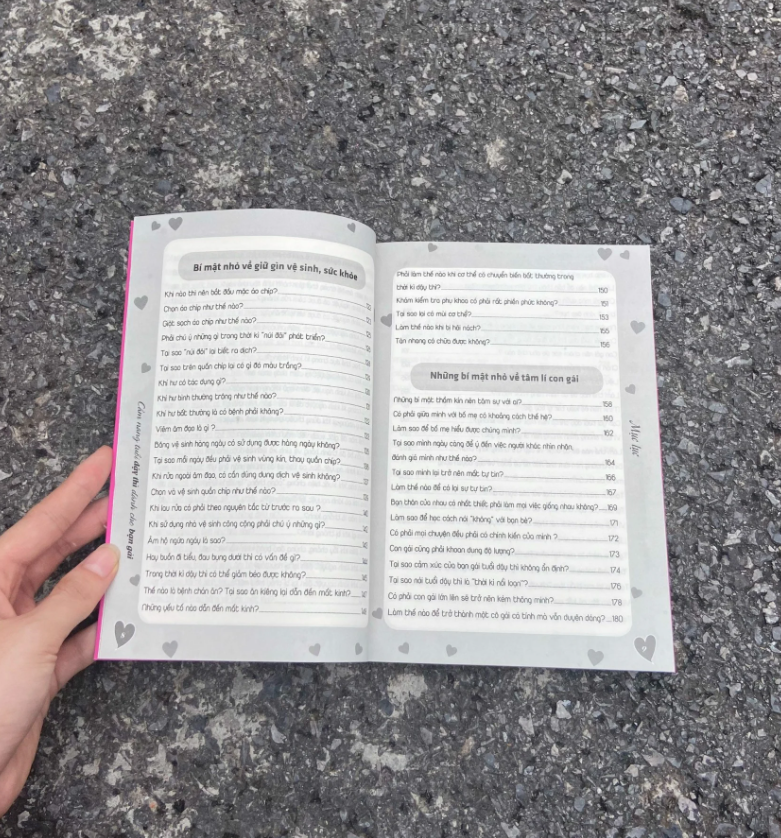 Bí mật nhỏ về giữ gìn vệ sinh, sức khỏe
Khi nào thì nên bắt đầu mặc áo chip?
Chọn áo chip như thế nào?
Giặt sạch áo chip như thế nào?
Phải chú ý những gì trong thời kì "núi đôi" phát triển?
Tại sao "núi đôi" lại tiết ra dịch?
Tại sao trên quần chip lại có gì đó màu trắng?
Khí hư có tác dụng gì?
Khí hư bình thường trông như thế nào?
Khí hư bất thường là có bệnh phải không?
Viêm âm đạo là gì?
Băng vệ sinh hàng ngày có sử dụng được hàng ngày không?
Tại sao mỗi ngày đều phải vệ sinh vùng kín, thay quần chip?
Khi rửa ngoài âm đạo, có cần dùng dung dịch vệ sinh không?
Chọn và vệ sinh quần chip như thế nào?
Khi lau rửa có phải theo nguyên tắc từ trước ra sau ?
Khi sử dụng nhà vệ sinh công cộng phải chú ý những gì?
Âm hộ ngứa ngáy là sao?
Hay buồn đi tiểu, đau bụng dưới thì có vấn đề gì?
Trong thời kì dậy thì có thể giảm béo được không?
Thế nào là bệnh chán ăn? Tại sao ăn kiêng lại dẫn đến mất kinh?
Những yếu tố nào dẫn đến mất kinh?
Cẩm nang tuổi dậy thì dành cho bạn gái
Phải làm thế nào khi cơ thể có chuyển biến bất thường trong
thời kì dậy thì? 150
Khám kiểm tra phụ khoa có phải rất phiền phức không? 151
Tại sao lại có mùi cơ thể? 153
Làm thế nào khi bị hôi nách? 155
Tàn nhang có chữa được không? 156
Những bí mật nhỏ về tâm lí con gái
Những bí mật thầm kín nên tâm sự với ai? 158
Có phải giữa mình với bố mẹ có khoảng cách thế hệ? 160
Làm sao để bố mẹ hiểu được chúng mình? 162
Tại sao mình ngày càng để ý đến việc người khác nhìn nhận,
đánh giá mình như thế nào? 164
Tại sao mình lại trở nên mất tự tin? 166
Làm thế nào để có lại sự tự tin? 167
Bạn thân của nhau có nhất thiết phải làm mọi việc giống nhau không? 169
Làm sao để học cách nói "không" với bạn bè? 171
Có phải mọi chuyện đều phải có chính kiến của mình ? 172
Con gái cũng phải khoan dung độ lượng? 173
Tại sao cảm xúc của bạn gái tuổi dậy thì không ổn định? 174
Tại sao nói tuổi dậy thì là "thời kì nổi loạn"? 176
Có phải con gái lớn lên sẽ trở nên kém thông minh? 178
Làm thế nào để trở thành một cô gái cá tính mà vẫn duyên dáng? 180
Mục lục